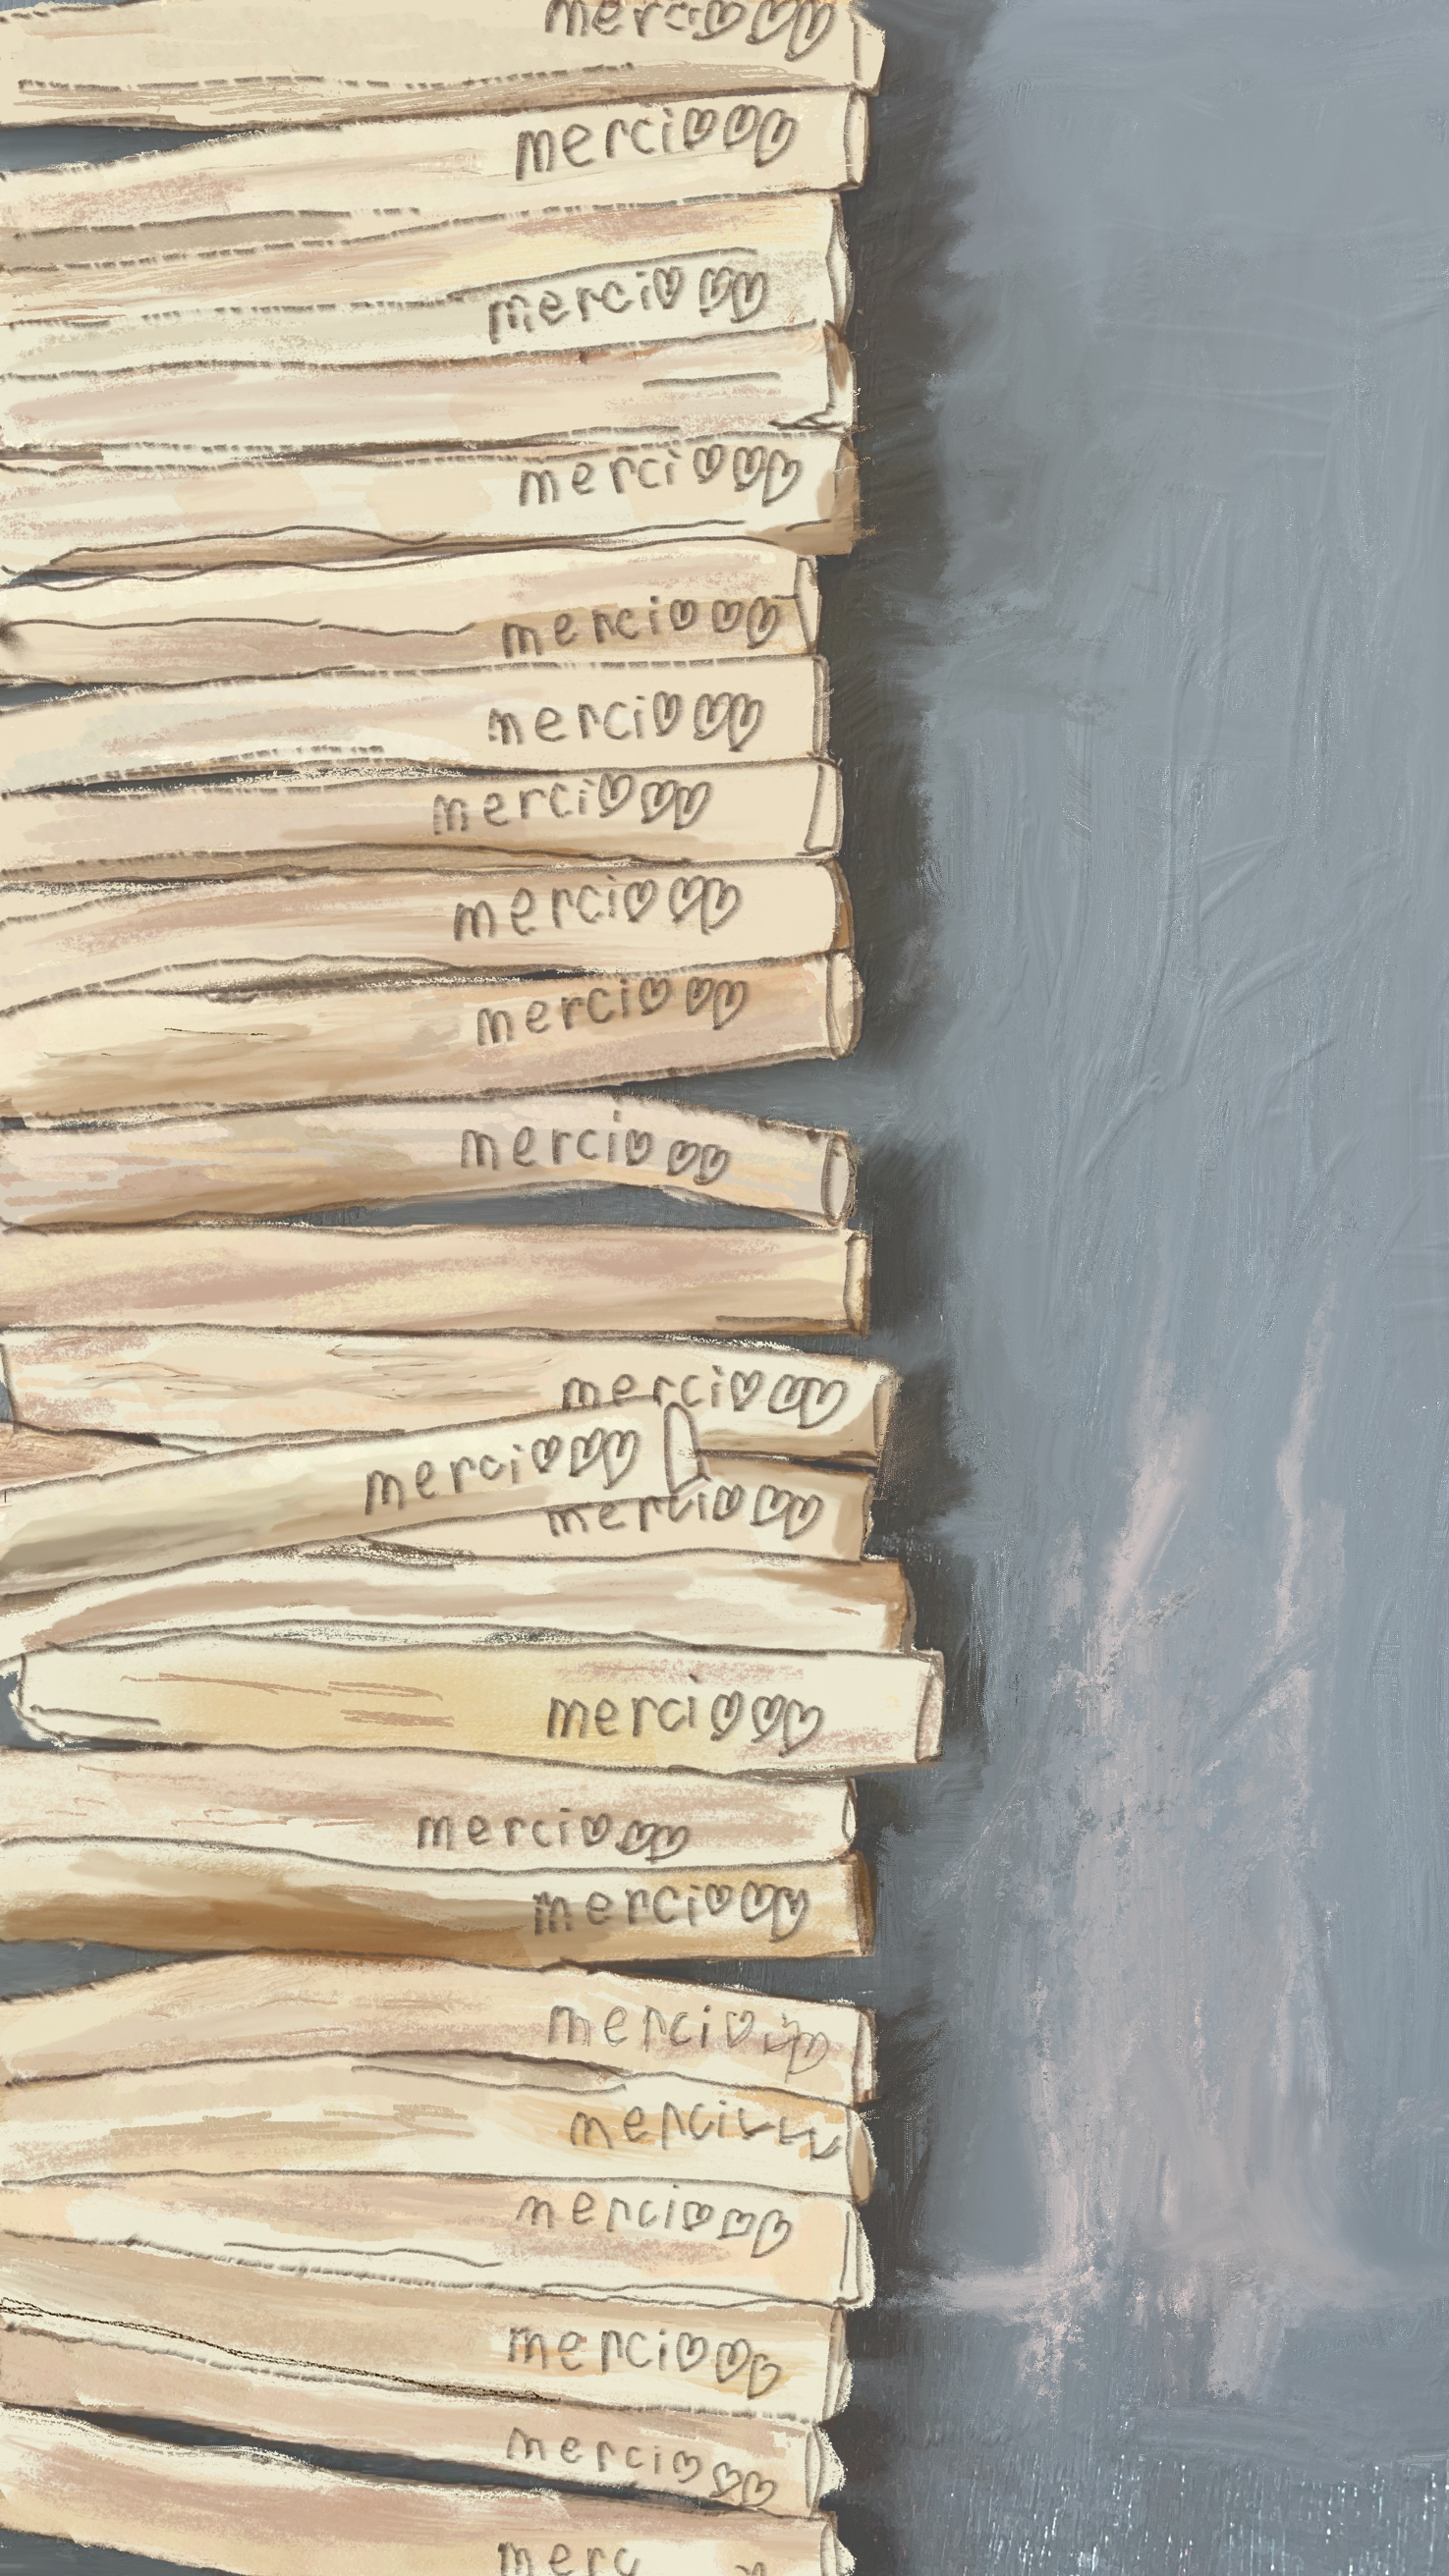 merci
merci
merci
merci
merci
merci
merci
merci
merci
merci
merci
merci
merci
merci
merci
merci
merci
merci
merci
merci
merci
merc